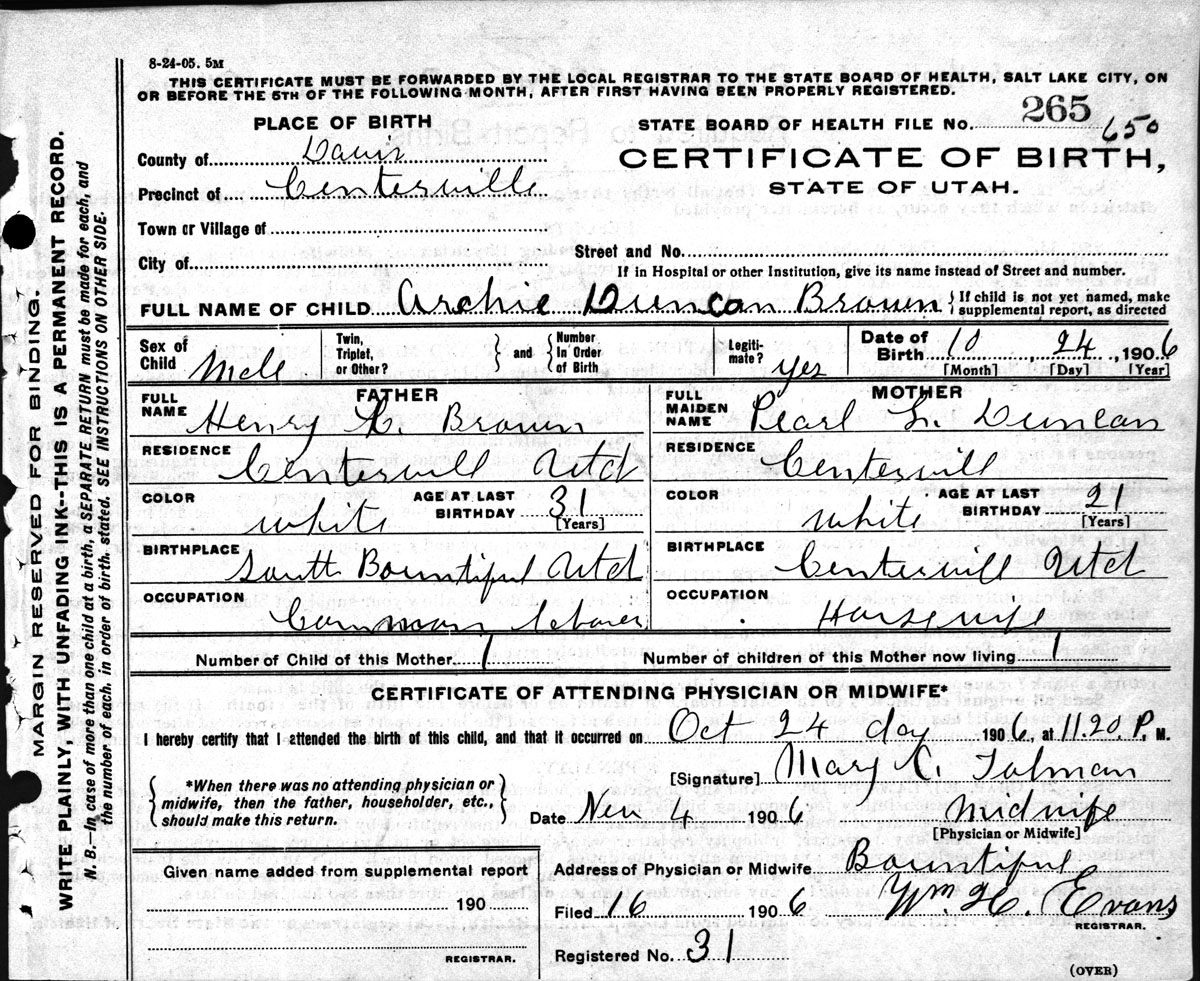 8-24-05. 5M
THIS CERTIFICATE MUST BE FORWARDED BY THE LOCAL REGISTRAR TO THE STATE BOARD OF HEALTH, SALT LAKE CITY, ON
OR BEFORE THE 5TH OF THE FOLLOWING MONTH, AFTER FIRST HAVING BEEN PROPERLY REGISTERED.
PLACE OF BIRTH
STATE BOARD OF HEALTH FILE No. 265
650
County of Davis
CERTIFICATE OF BIRTH,
Precinct of Centerville
STATE OF UTAH.
Town or Village of
Street and No.
City of
If in Hospital or other Institution, give its name instead of Street and number.
FULL NAME OF CHILD Archie Duncan Brown { If child is not yet named, make supplemental report, as directed
Sex of Child Mele
Twin, Triplet, or Other? } and { Number in Order of Birth
Legiti-mate? yes
Date of Birth 10, 24, 1906
[Month] [Day] [Year]
FATHER
FULL NAME Henry A. Brown
MOTHER
FULL MAIDEN NAME Pearl L. Duncan
RESIDENCE Centervill Utd
RESIDENCE Centervill
COLOR white AGE AT LAST BIRTHDAY 31 [Years]
COLOR white AGE AT LAST BIRTHDAY 21 [Years]
BIRTHPLACE South Bountiful Utd
BIRTHPLACE Centervill Utd
OCCUPATION Common laborer
OCCUPATION Housewife
Number of Child of this Mother 1
Number of children of this Mother now living 1
CERTIFICATE OF ATTENDING PHYSICIAN OR MIDWIFE*
I hereby certify that I attended the birth of this child, and that it occurred on Oct 24 day 1906, at 11.20. P. M.
*When there was no attending physician or midwife, then the father, householder, etc., should make this return.
[Signature] Mary C. Tolman
Date Nov 4 1906 Midwife
[Physician or Midwife]
Given name added from supplemental report
190
REGISTRAR.
Address of Physician or Midwife Bountiful
Filed 16 1906 Wm. H. Evans
REGISTRAR.
Registered No. 31
(OVER)
MARGIN RESERVED FOR BINDING.
WRITE PLAINLY, WITH UNFADING INK--THIS IS A PERMANENT RECORD.
N. B.—In case of more than one child at a birth, a SEPARATE RETURN must be made for each, and
the number of each, in order of birth, stated. SEE INSTRUCTIONS ON OTHER SIDE.